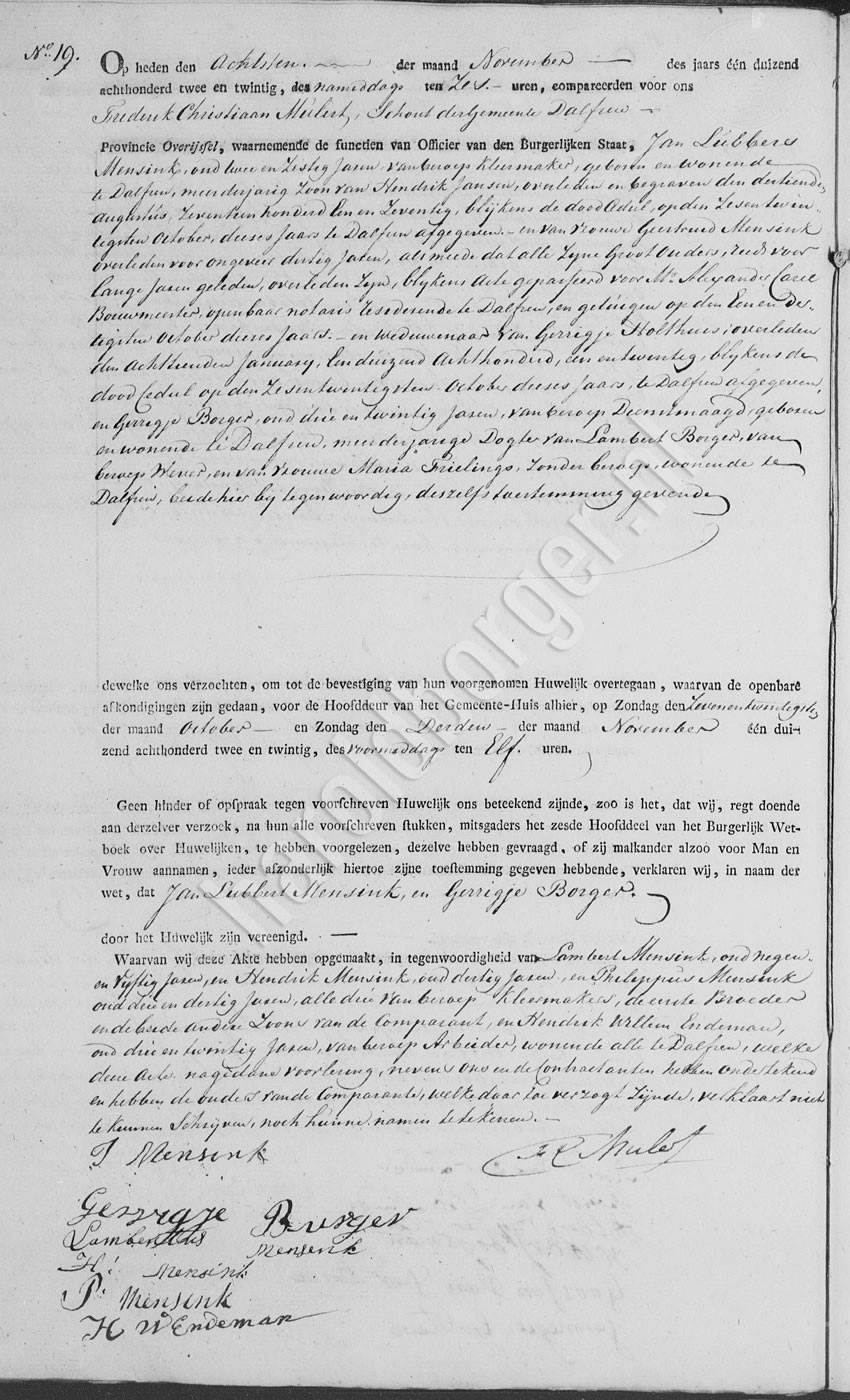 No. 19.
Op heden den Achtsten der maand November des jaars één duizend
achthonderd twee en twintig, des nameddags ten Zes uren, compareerden voor ons
Frederik Christiaan Mulert, Schout der Gemeente Dalfsen
Provincie Overijsel, waarnemende de functien van Officier van den Burgerlijken Staat, Jan Lubbers
Mensink, oud twee en Zestig Jaren, van beroep Kleermaker, geboren en wonende
te Dalfsen, meerderjarig Zoon van Hendrik Jansen, overleden en begraven den dertiende
Augustus, Zeventienhonderd Een en Zeventig, blijkens de dood Cedul, op den Zesen twin-
tigsten October, deeses Jaars te Dalfsen afgegeven, en van vrouwe Geertruid Mensink
overleden voor ongeveer dertig Jaren, als meede dat alle Zyne Groot Ouders, reeds voor
lange Jaren geleden, overleden Zyn, blykens Acte gepasseerd voor Mr. Alexander Carel
Bouwmeester, openbaar notaris resederende te Dalfsen, en getuigen op den Eenen der-
tigsten October deeses Jaars. en Weduwenaar van Gerrigje Holthuis, overleden
den Achttienden January, Eenduizend Achthonderd, een en twintig, blykens de
dood Cedul op den Zesentwintigsten October deeses Jaars, te Dalfsen afgegeven,
en Gerrigje Borger, oud drie en twintig Jaren, van beroep Dienstmaagd, geboren
en wonende te Dalfsen, meerderjarige Dogter van Lambert Borger, van
beroep Wever, en van vrouwe Maria Frielings, Zonder beroep, wonende te
Dalfsen, beide hier by tegenwoordig, deszelfs toestemming gevende
dewelke ons verzochten, om tot de bevestiging van hun voorgenomen Huwelijk overtegaan, waarvan de openbare
afkondigingen zijn gedaan, voor de Hoofddeur van het Gemeente-Huis alhier, op Zondag den Zevenentwintigste
der maand October en Zondag den Derden der maand November één dui-
zend achthonderd twee en twintig, des voormeddags ten Elf uren.
Geen hinder of opspraak tegen voorschreven Huwelijk ons beteekend zijnde, zoo is het, dat wij, regt doende
aan derzelver verzoek, na hun alle voorschreven stukken, mitsgaders het zesde Hoofddeel van het Burgerlijk Wet-
boek over Huwelijken, te hebben voorgelezen, dezelve hebben gevraagd, of zij malkander alzoo voor Man en
Vrouw aannamen, ieder afzonderlijk hiertoe zijne toestemming gegeven hebbende, verklaren wij, in naam der
wet, dat Jan Lubbert Mensink, en Gerrigje Borger.
door het Huwelijk zijn vereenigd.
Waarvan wij deze Akte hebben opgemaakt, in tegenwoordigheid van Lambert Mensink, oud negen-
en Vyftig Jaren, en Hendrik Mensink, oud dertig Jaren, en Philippus Mensink
oud drie en dertig Jaren, alle drie van beroep Kleermakers, de eerste Broeder
en de beide andere Zoons van de Comparant, en Hendrik Willem Endeman,
oud drie en twintig Jaren, van beroep Arbeider, wonende alle te Dalfsen, welke
dene Acte nagedane voorlezing, nevens ons en de Contractanten hebben ondertekend
en hebben de ouders van de Comparante, welke daar toe verzogt Zynde, verklaart niet
te kunnen Schryven, noch hunne namen te tekenen.
J Mensink
F C Mulert
Gerrigje Burger
Lambertus Mensink
H: Mensink
P: Mensink
H W Endeman
hetpitelborger.nl